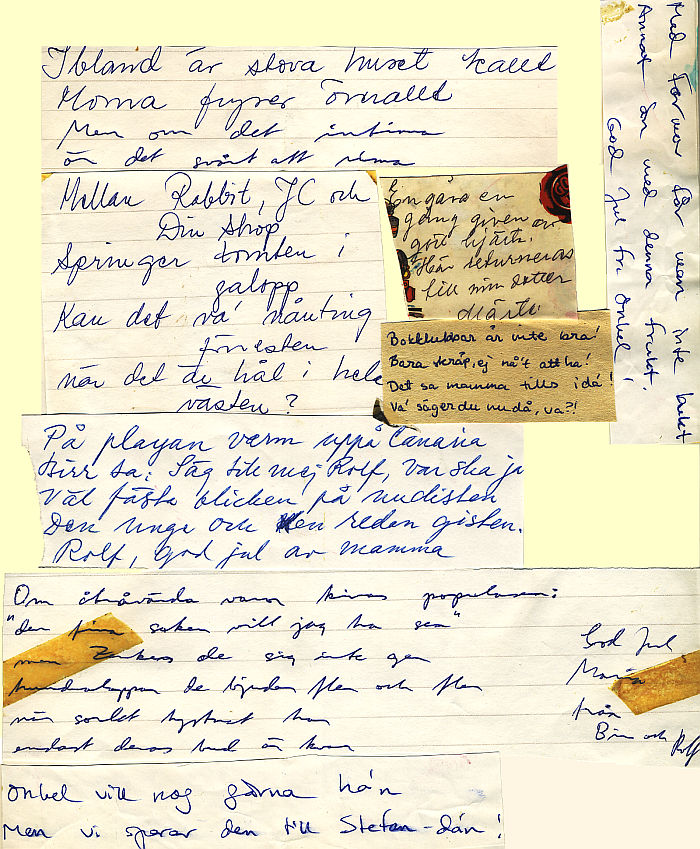 Ibland är stora huset kallt
Morna fryser överallt
Men om det intima
är det svårt att rima
Mellan Rabbit, JC och
Din Shop
Springer tomten i
galopp
Kan det va' nånting
förresten
när det är hål i hela
västen?
En gåva en
gång given av
gott hjärta.
Här returneras
till min dotter
Märta
Bokklubbar är inte bra!
Bara skräp, ej nå't att ha!
Det sa mamma tills idá!
Va' säger du nu då, va?!
Med farmor får man inte
Annat än med denna frukt.
God Jul fr. Onkel!
På playan varm uppå Canaria
Birr sa: Säg till mej Rolf, var ska ja
Väl fästa blicken på nudisten
Den unga och den redan gisten.
Rolf, god jul av mamma
Om åtråvärda varor kivas populasen:
"den fina saken vill jag ha sen"
men de sig inte ger
hundralappar de bjuder fler och fler
när såldt han
endast deras bud är kvar
God Jul
Maria
från
Birr och Rolf
Onkel vill nog gärna hán
Men vi sparar den till Stefan-dán!